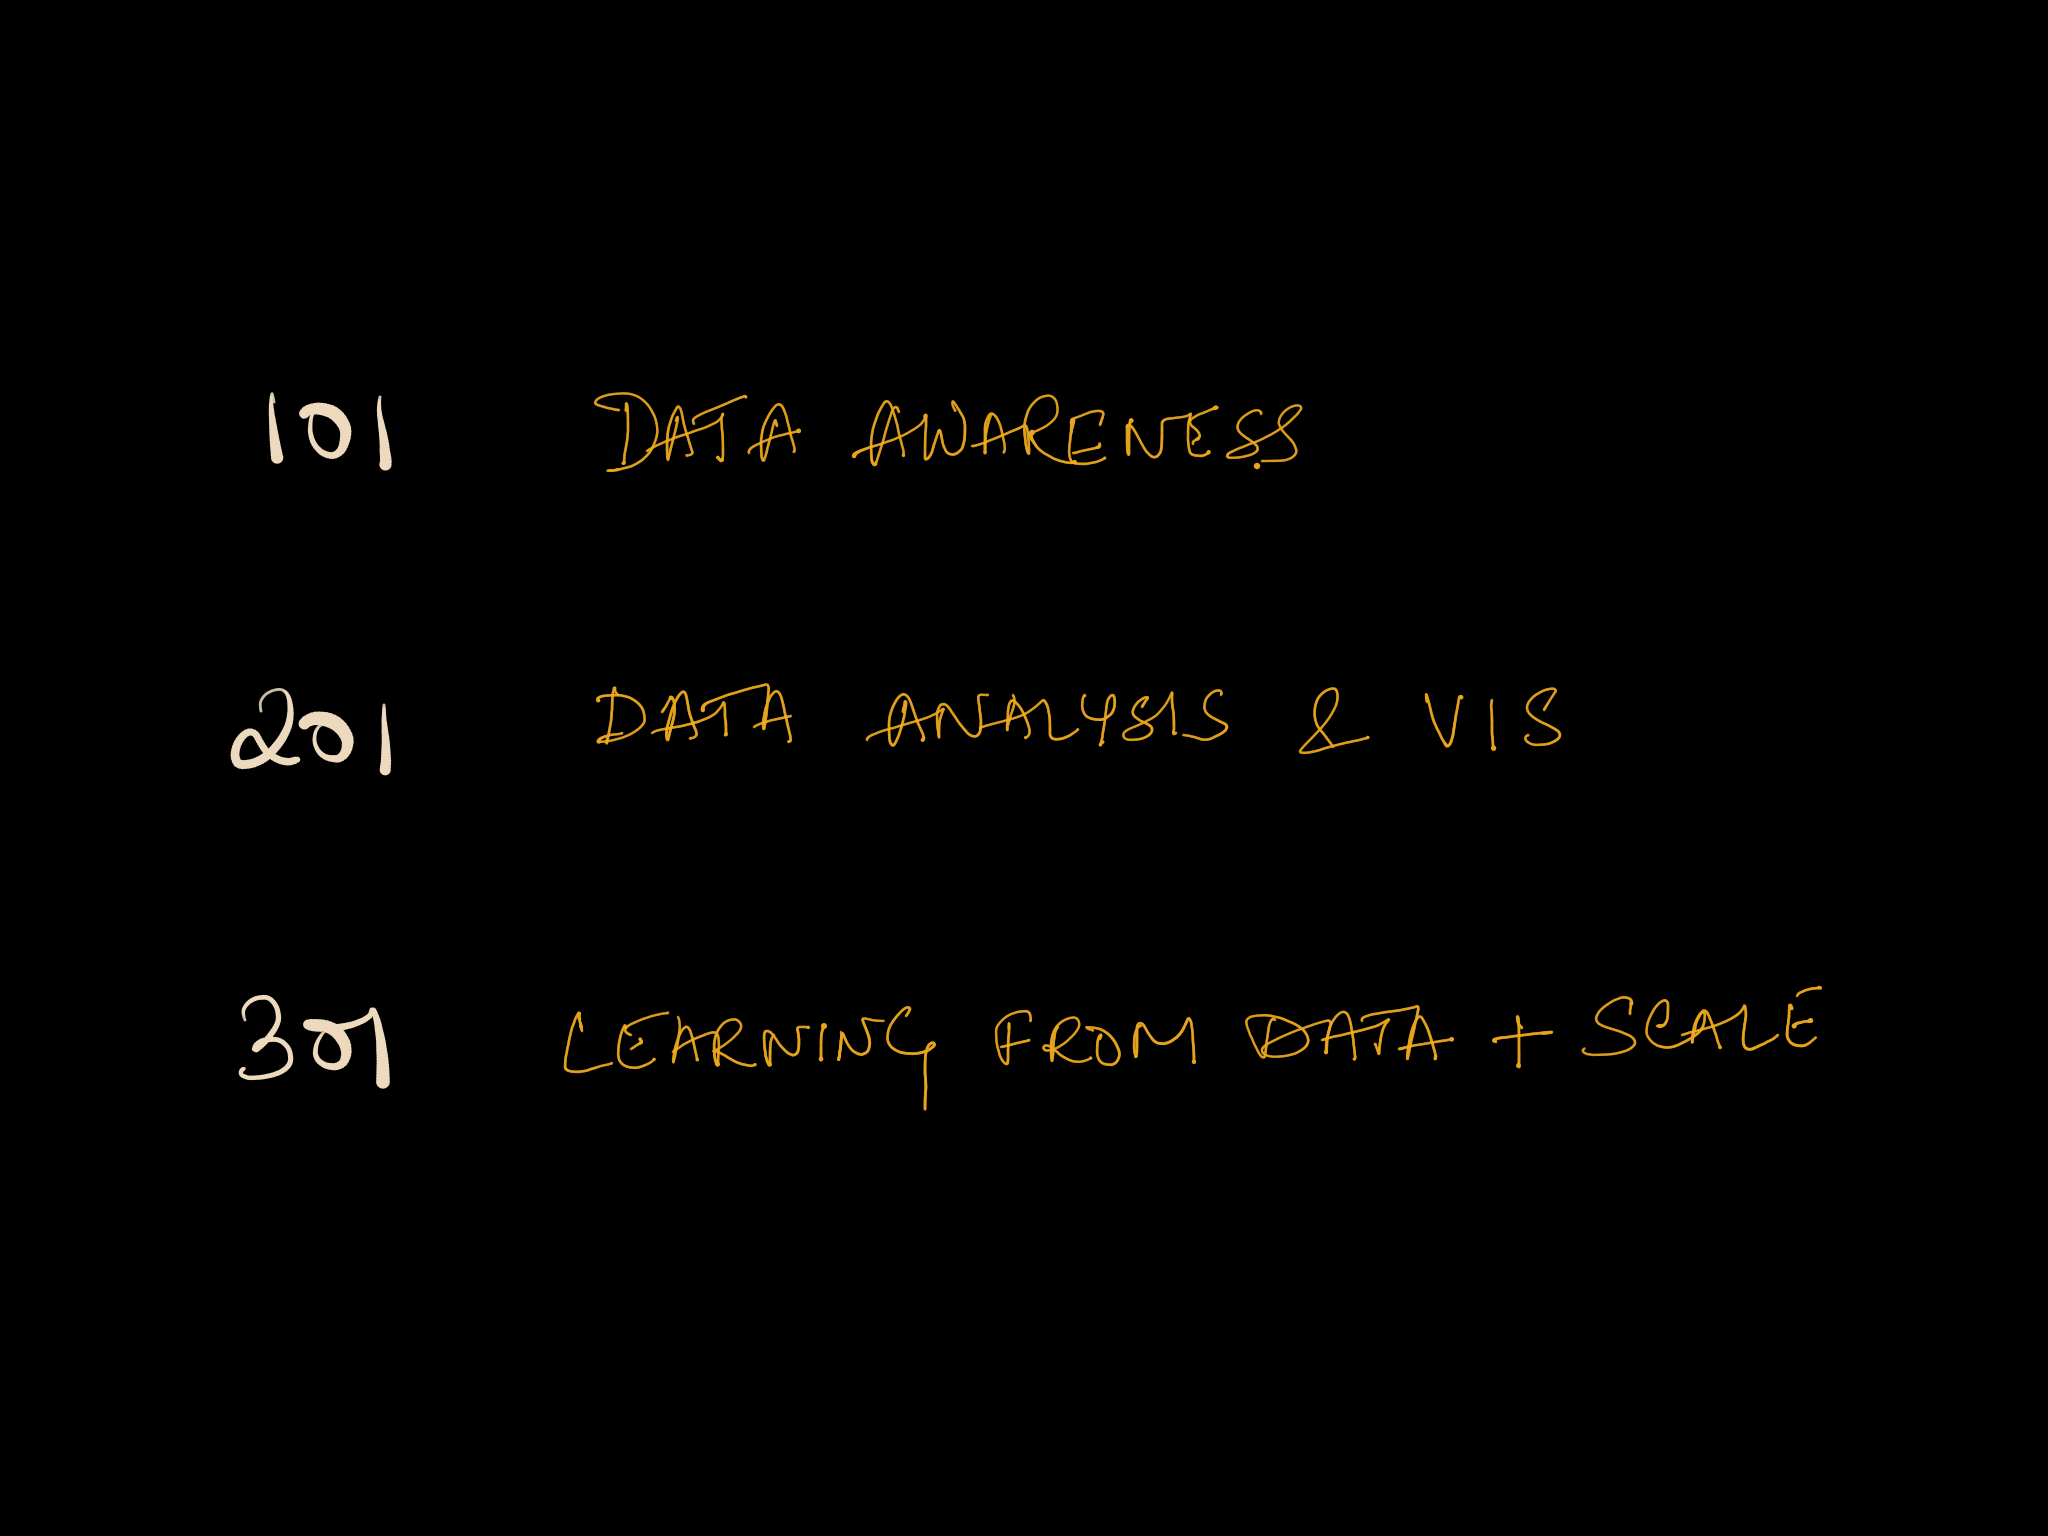 101 DATA AWARENESS
201 DATA ANALYSIS & VIS
301 LEARNING FROM DATA + SCALE